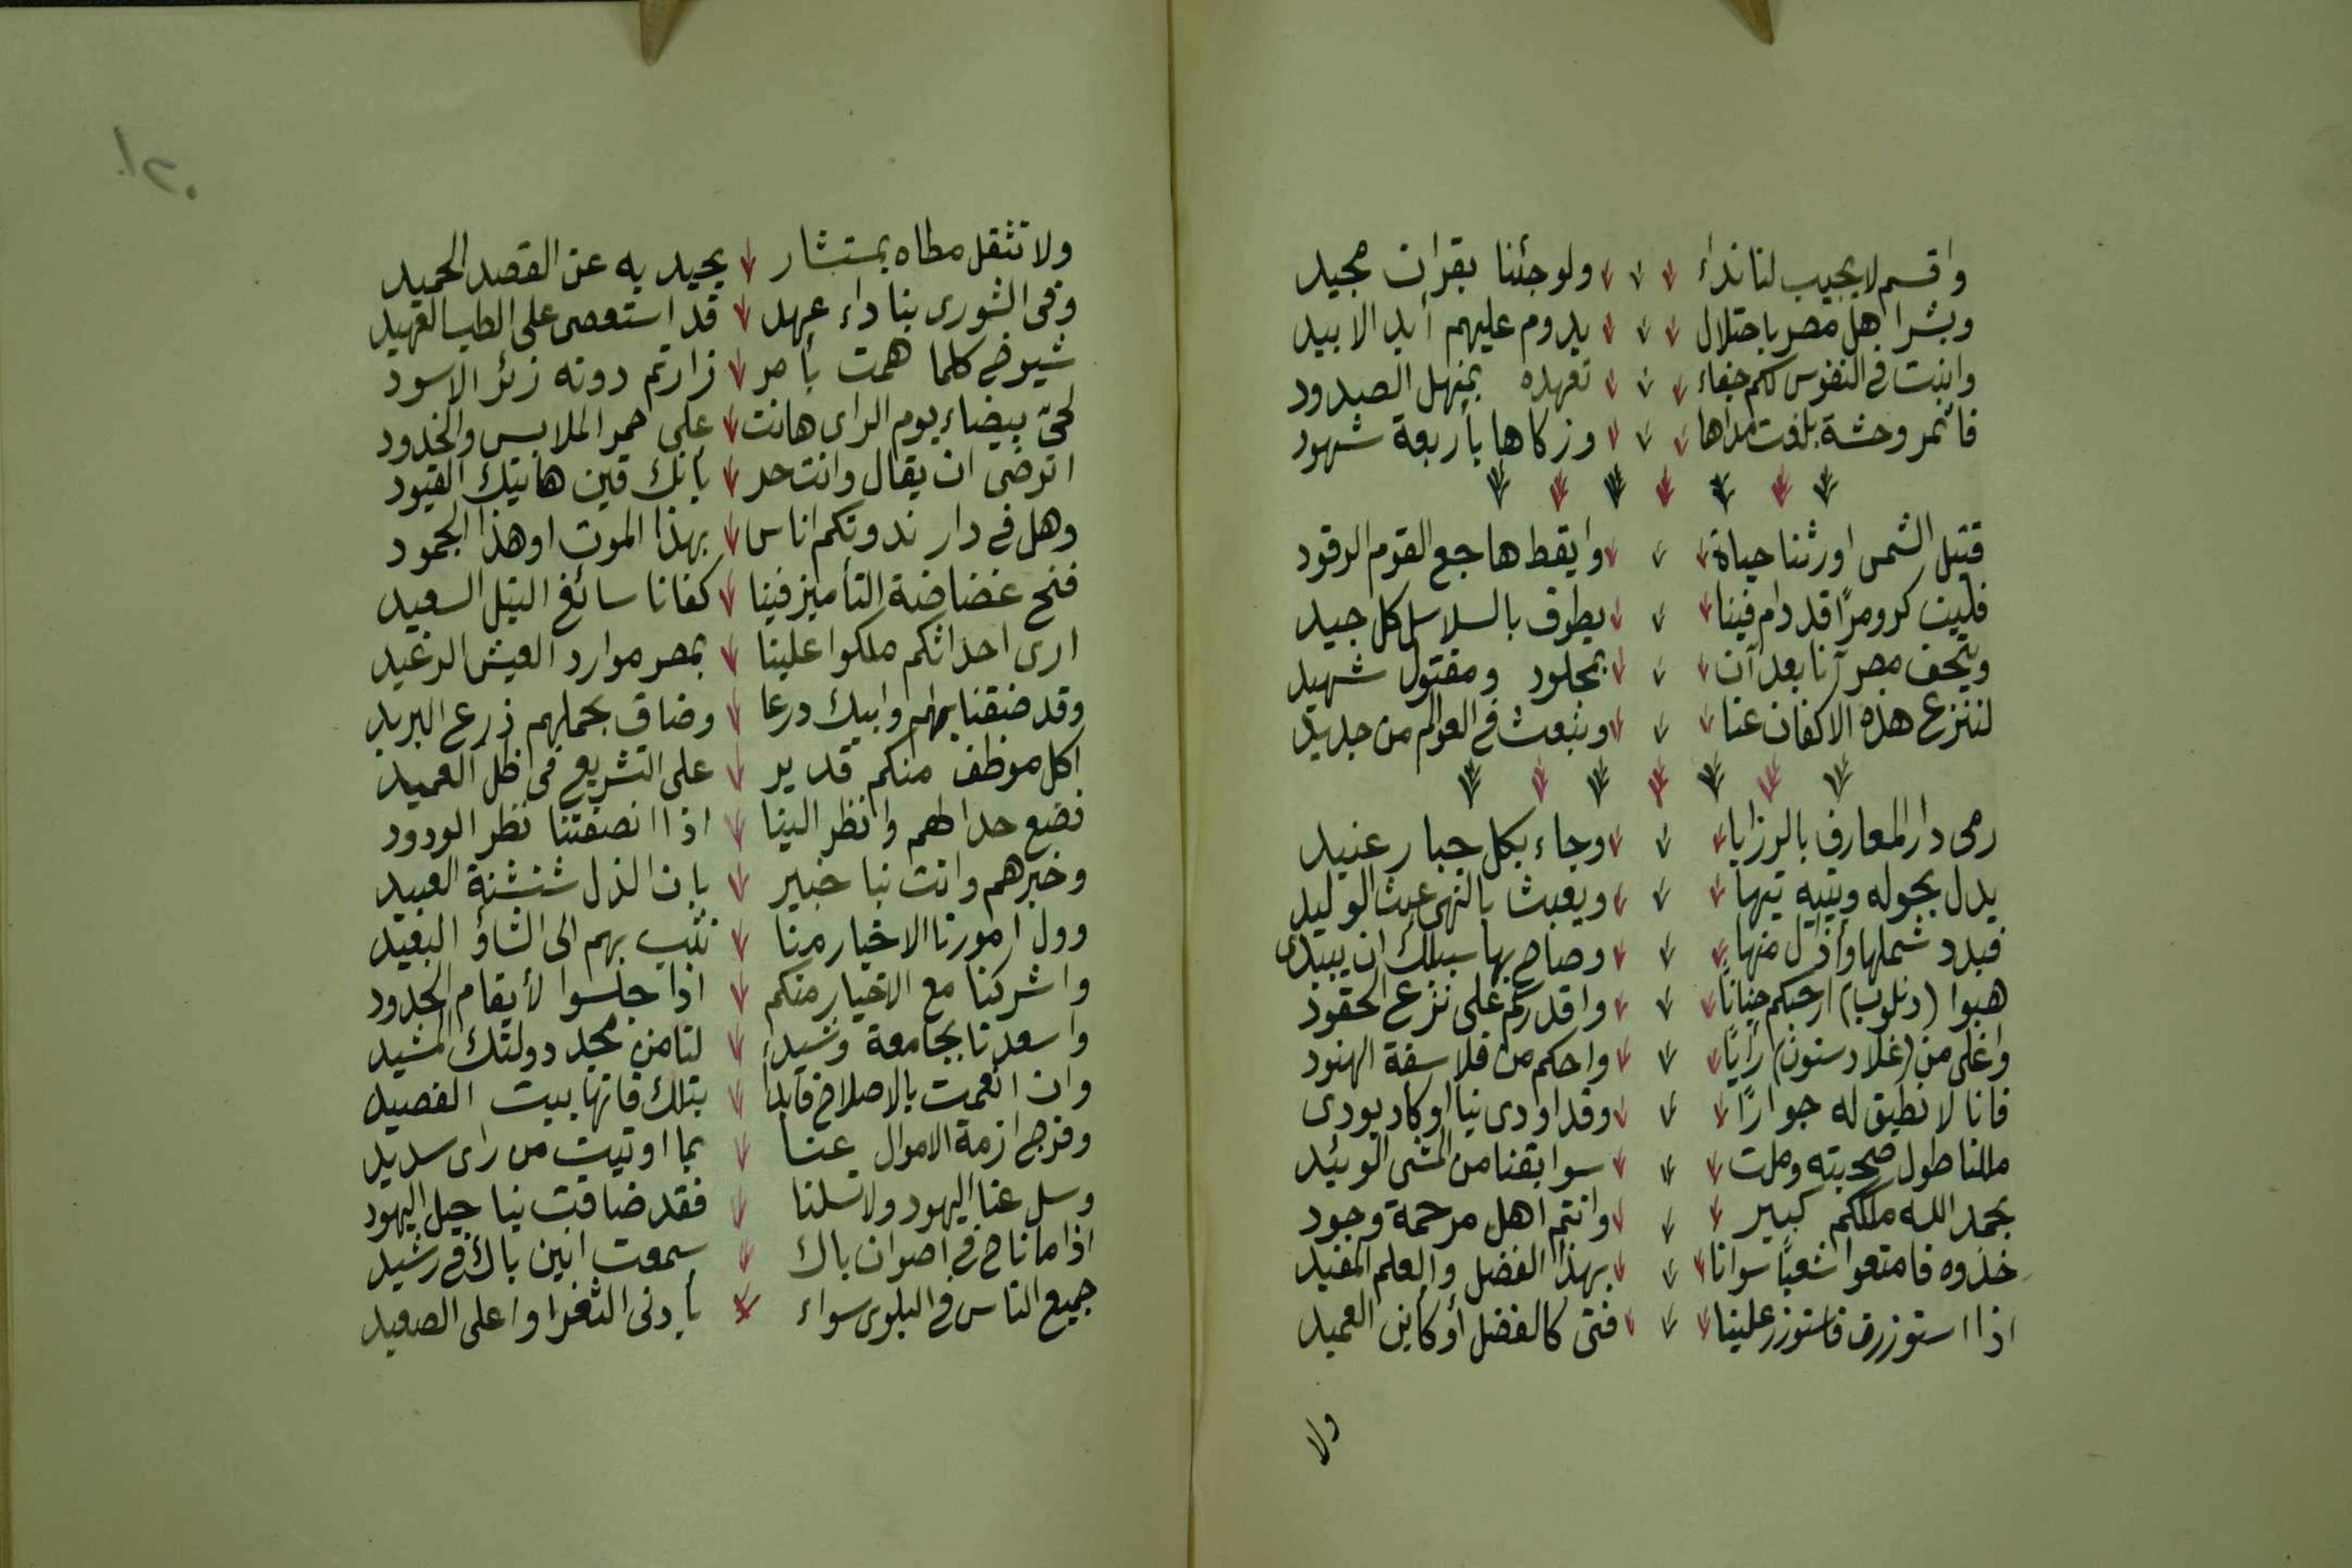 واقسم لا يجيب لنا نداء ولو جئنا بقران مجيد
وبشر اهل مصر باحتلال يدوم عليهم أبد الابيد
وانبت فى النفوس لكم جفاء تعهده بمنهل الصدود
فأثمر وحشة بلغت مداها وزكاها بأربعة شهود
قتيل الشمس اورثنا حياة وايقظ هاجع القوم الرقود
فليت كرومرًا قد دام فينا يطوق بالسلاسل كل جيد
ويتحف مصر آنا بعد آن بمجلود ومقتول شهيد
لننزع هذه الاكفان عنا ونبعث فى العوالم من جديد
رمى دار المعارف بالرزايا وجاء بكل جبار عنيد
يدل بحوله ويتيه تيها ويعبث بالنهى عبث الوليد
فبدد شملها وأذل منها وصاح بها سبيلك ان تبيدى
هبوا (دنلوب) ارحبكم جنانًا واقدركم على نزع الحقود
واغلى من (غلادستون) رأيًا واحكم من فلاسفة الهنود
فانا لا نطيق له جوارًا وقد اودى بنا او كاد يودى
مللنا طول صحبته وملت سوابقنا من المشى الوئيد
بحمد الله ملككم كبير وانتم اهل مرحمة وجود
خذوه فامتعوا شعبًا سوانا بهذا الفضل والعلم المفيد
اذا استوزرت فاستوزر علينا فتى كالفضل أو كابن العميد
ولا
١٢٠
ولا تثقل مطاه بمستشار يحيد به عن القصد الحميد
وفى الشورى بنا داء عهد قد استعصى على الطب العهيد
شيوخ كلما همت بأمر زارتم دونه زئر الاسود
لحى بيضاء يوم الراى هانت على حمر الملابس والخدود
اترضى ان يقال وانت حر بانك قين هاتيك القيود
وهل فى دار ندوتكم اناس بهذا الموت او هذا الجمود
فنح غضاضة التأميز فينا كفانا سائغ النيل السعيد
ارى احداثكم ملكوا علينا بمصر موارد العيش الرغيد
وقد ضنقنا بهم وابيك درعا وضاق بحملهم ذرع البريد
اكل موظف منكم قدير على التشريع فى ظل العميد
فضع حدا لهم وانظر الينا اذا انصفتنا نظر الودود
وخبرهم وانت بنا خبير بان الذل شنشنة العبيد
وول امورنا الاخيار منا نثب بهم الى الشاؤ البعيد
واشركنا مع الاخيار منكم اذا جلسوا لأيقام الحدود
واسعدنا بجامعة وشيد لنا من مجد دولتك المشيد
وان انعمت بالاصلاح فابدأ بتلك فانها بيت القصيد
وفرج ازمة الاموال عنا بما اوتيت من راى سديد
وسل عنا اليهود ولا تسلنا فقد ضاقت بنا حيل اليهود
اذا ما ناح فى اصوان باك سمعت انين باك فى رشيد
جميع الناس فى البلوى سواء بأدنى الثغر او اعلى الصعيد